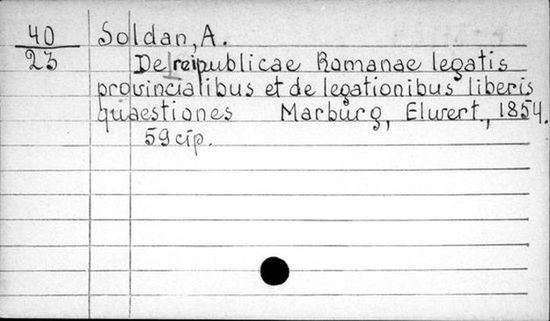 40
23
Soldan, A.
De reipublicae Romanae legatis
provincialibus et de legationibus liberis
quaestiones Marburg, Elwert, 1854.
59 cip.